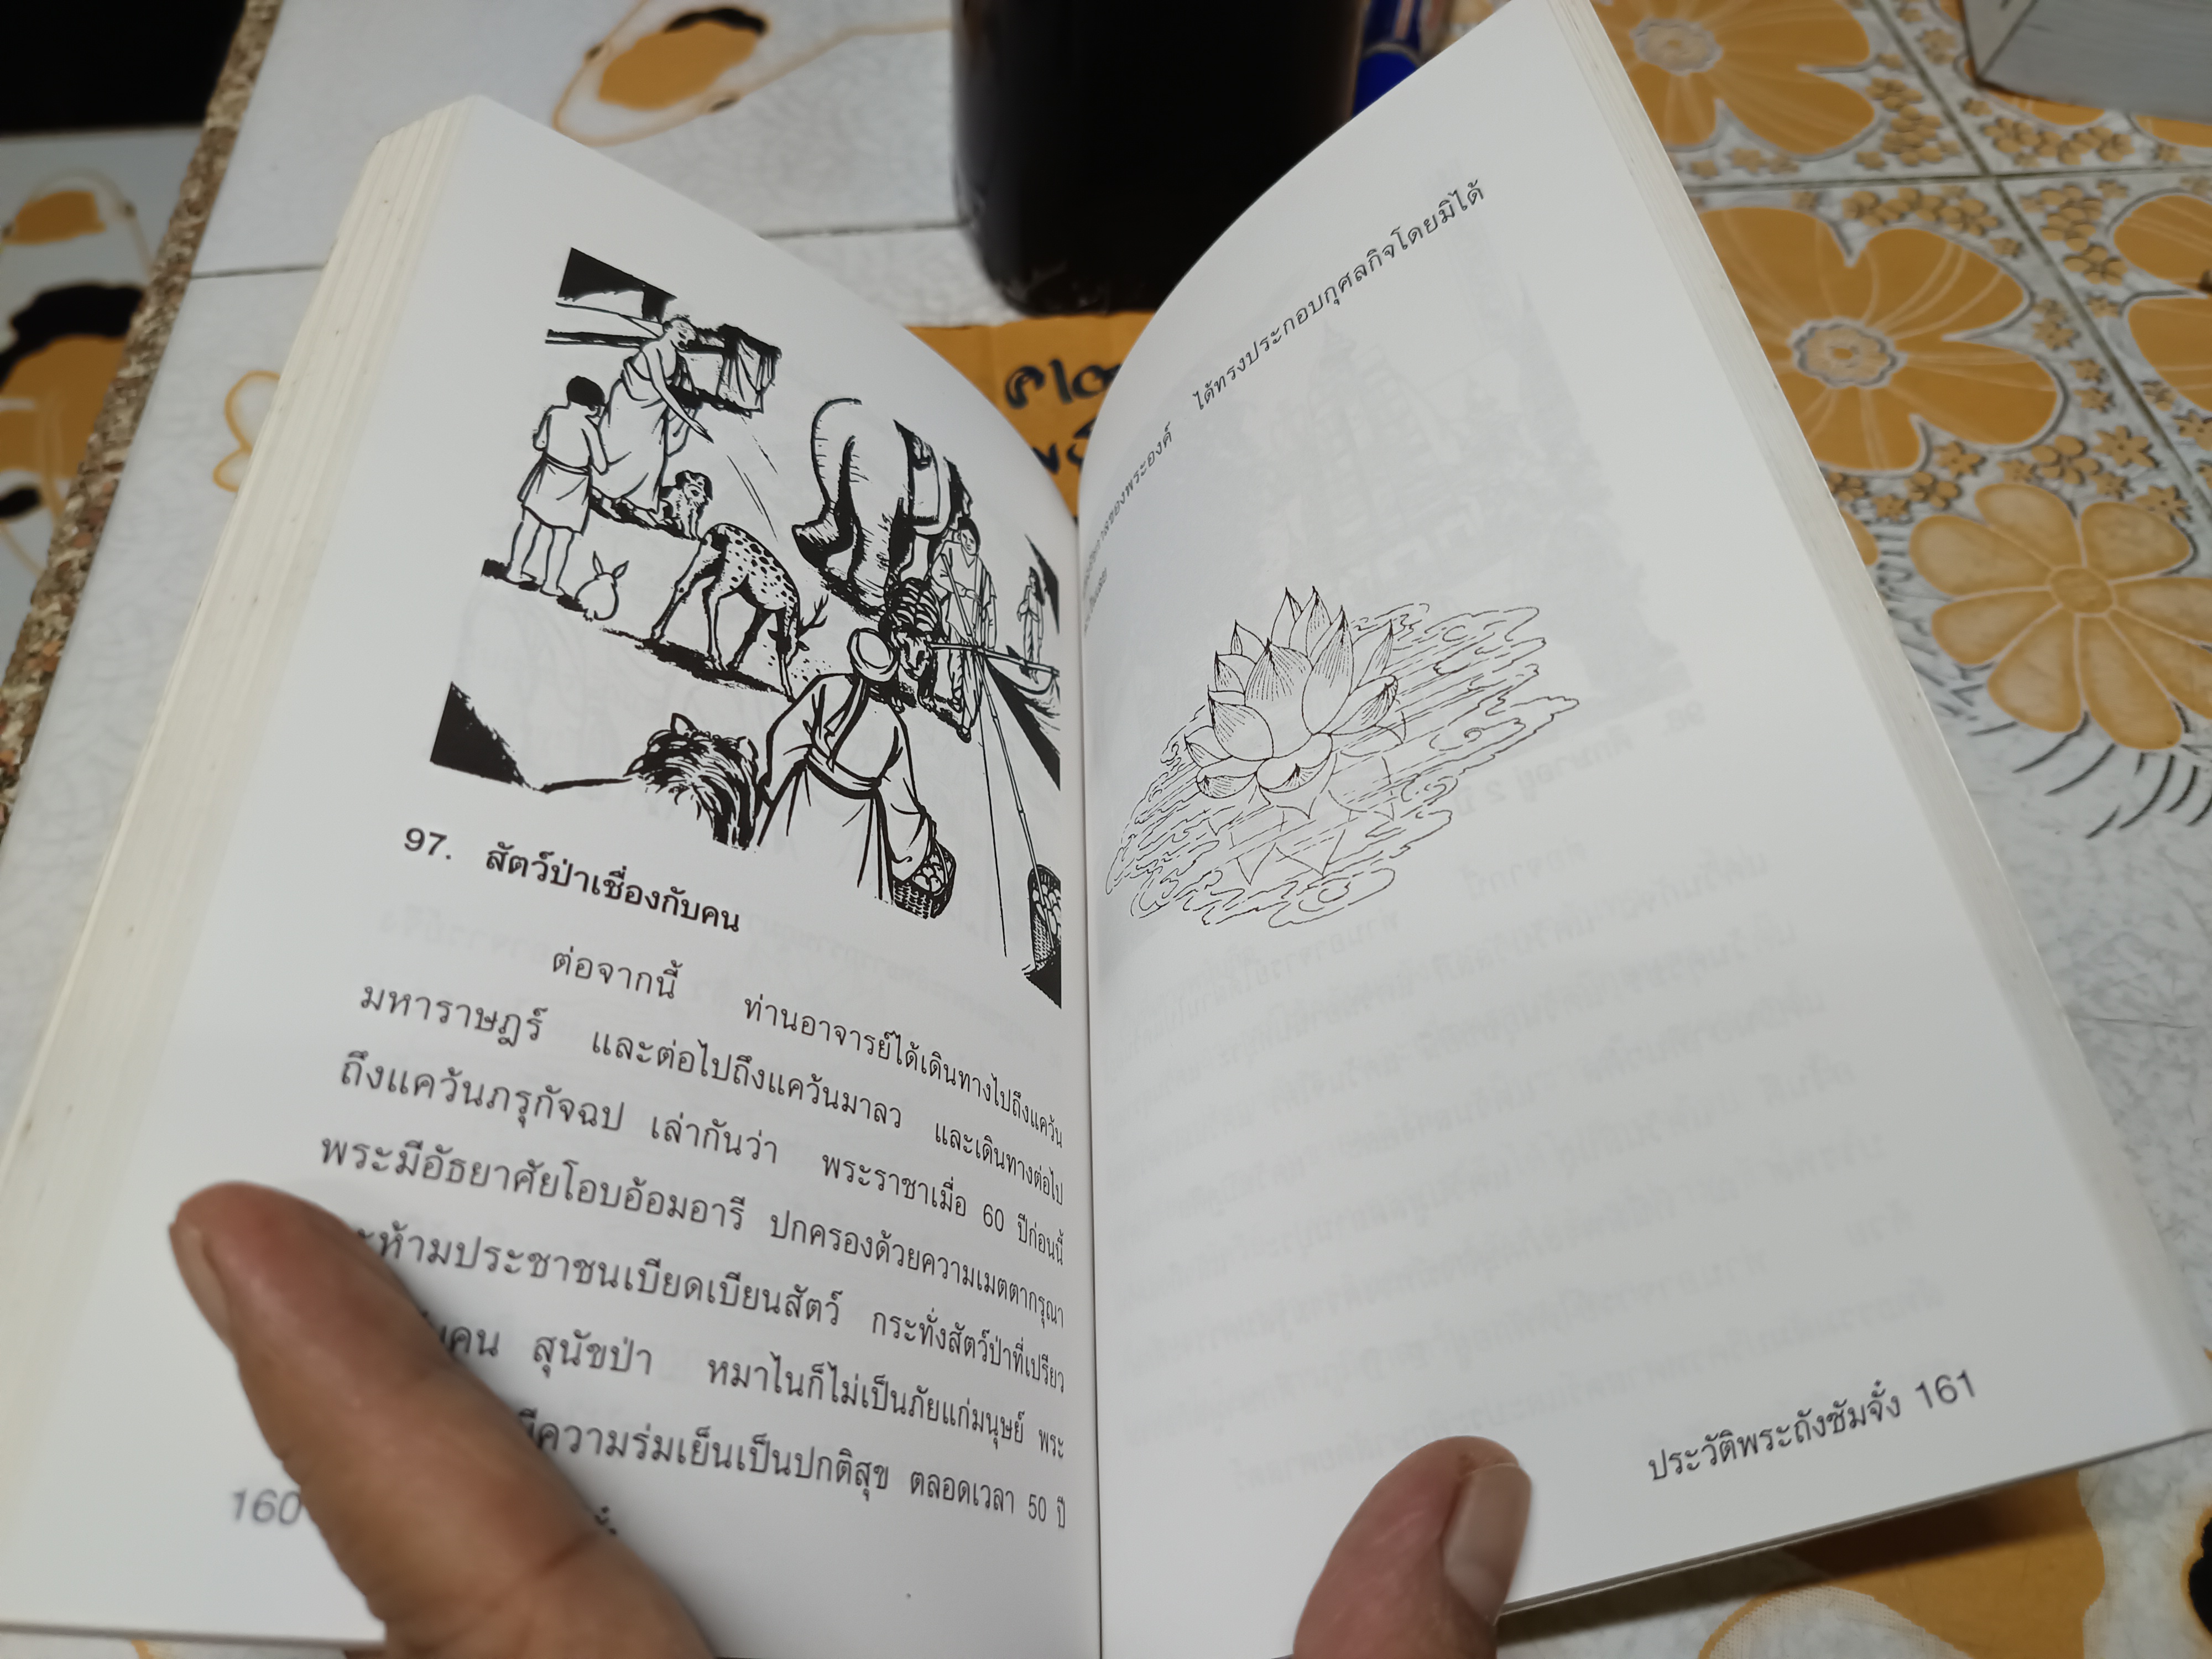 97. สัตว์ป่าเชื่องกับคน
ต่อจากนี้ ท่านอาจารย์ได้เดินทางไปถึงแคว้น
มหาราษฎร์ และต่อไปถึงแคว้นมาลว และเดินทางต่อไป
ถึงแคว้นภรุกัจฉป เล่ากันว่า พระราชาเมื่อ 60 ปีก่อนนี้
พระมีอัธยาศัยโอบอ้อมอารี ปกครองด้วยความเมตตากรุณา
ห้ามประชาชนเบียดเบียนสัตว์ กระทั่งสัตว์ป่าที่เปรียว
คน สุนัขป่า หมาไนก็ไม่เป็นภัยแก่มนุษย์ พระ
มีความร่มเย็นเป็นปกติสุข ตลอดเวลา 50 ปี
160
ของพระองค์ ได้ทรงประกอบกุศลกิจโดยมิได้
ประวัติพระถังซัมจั๋ง 161